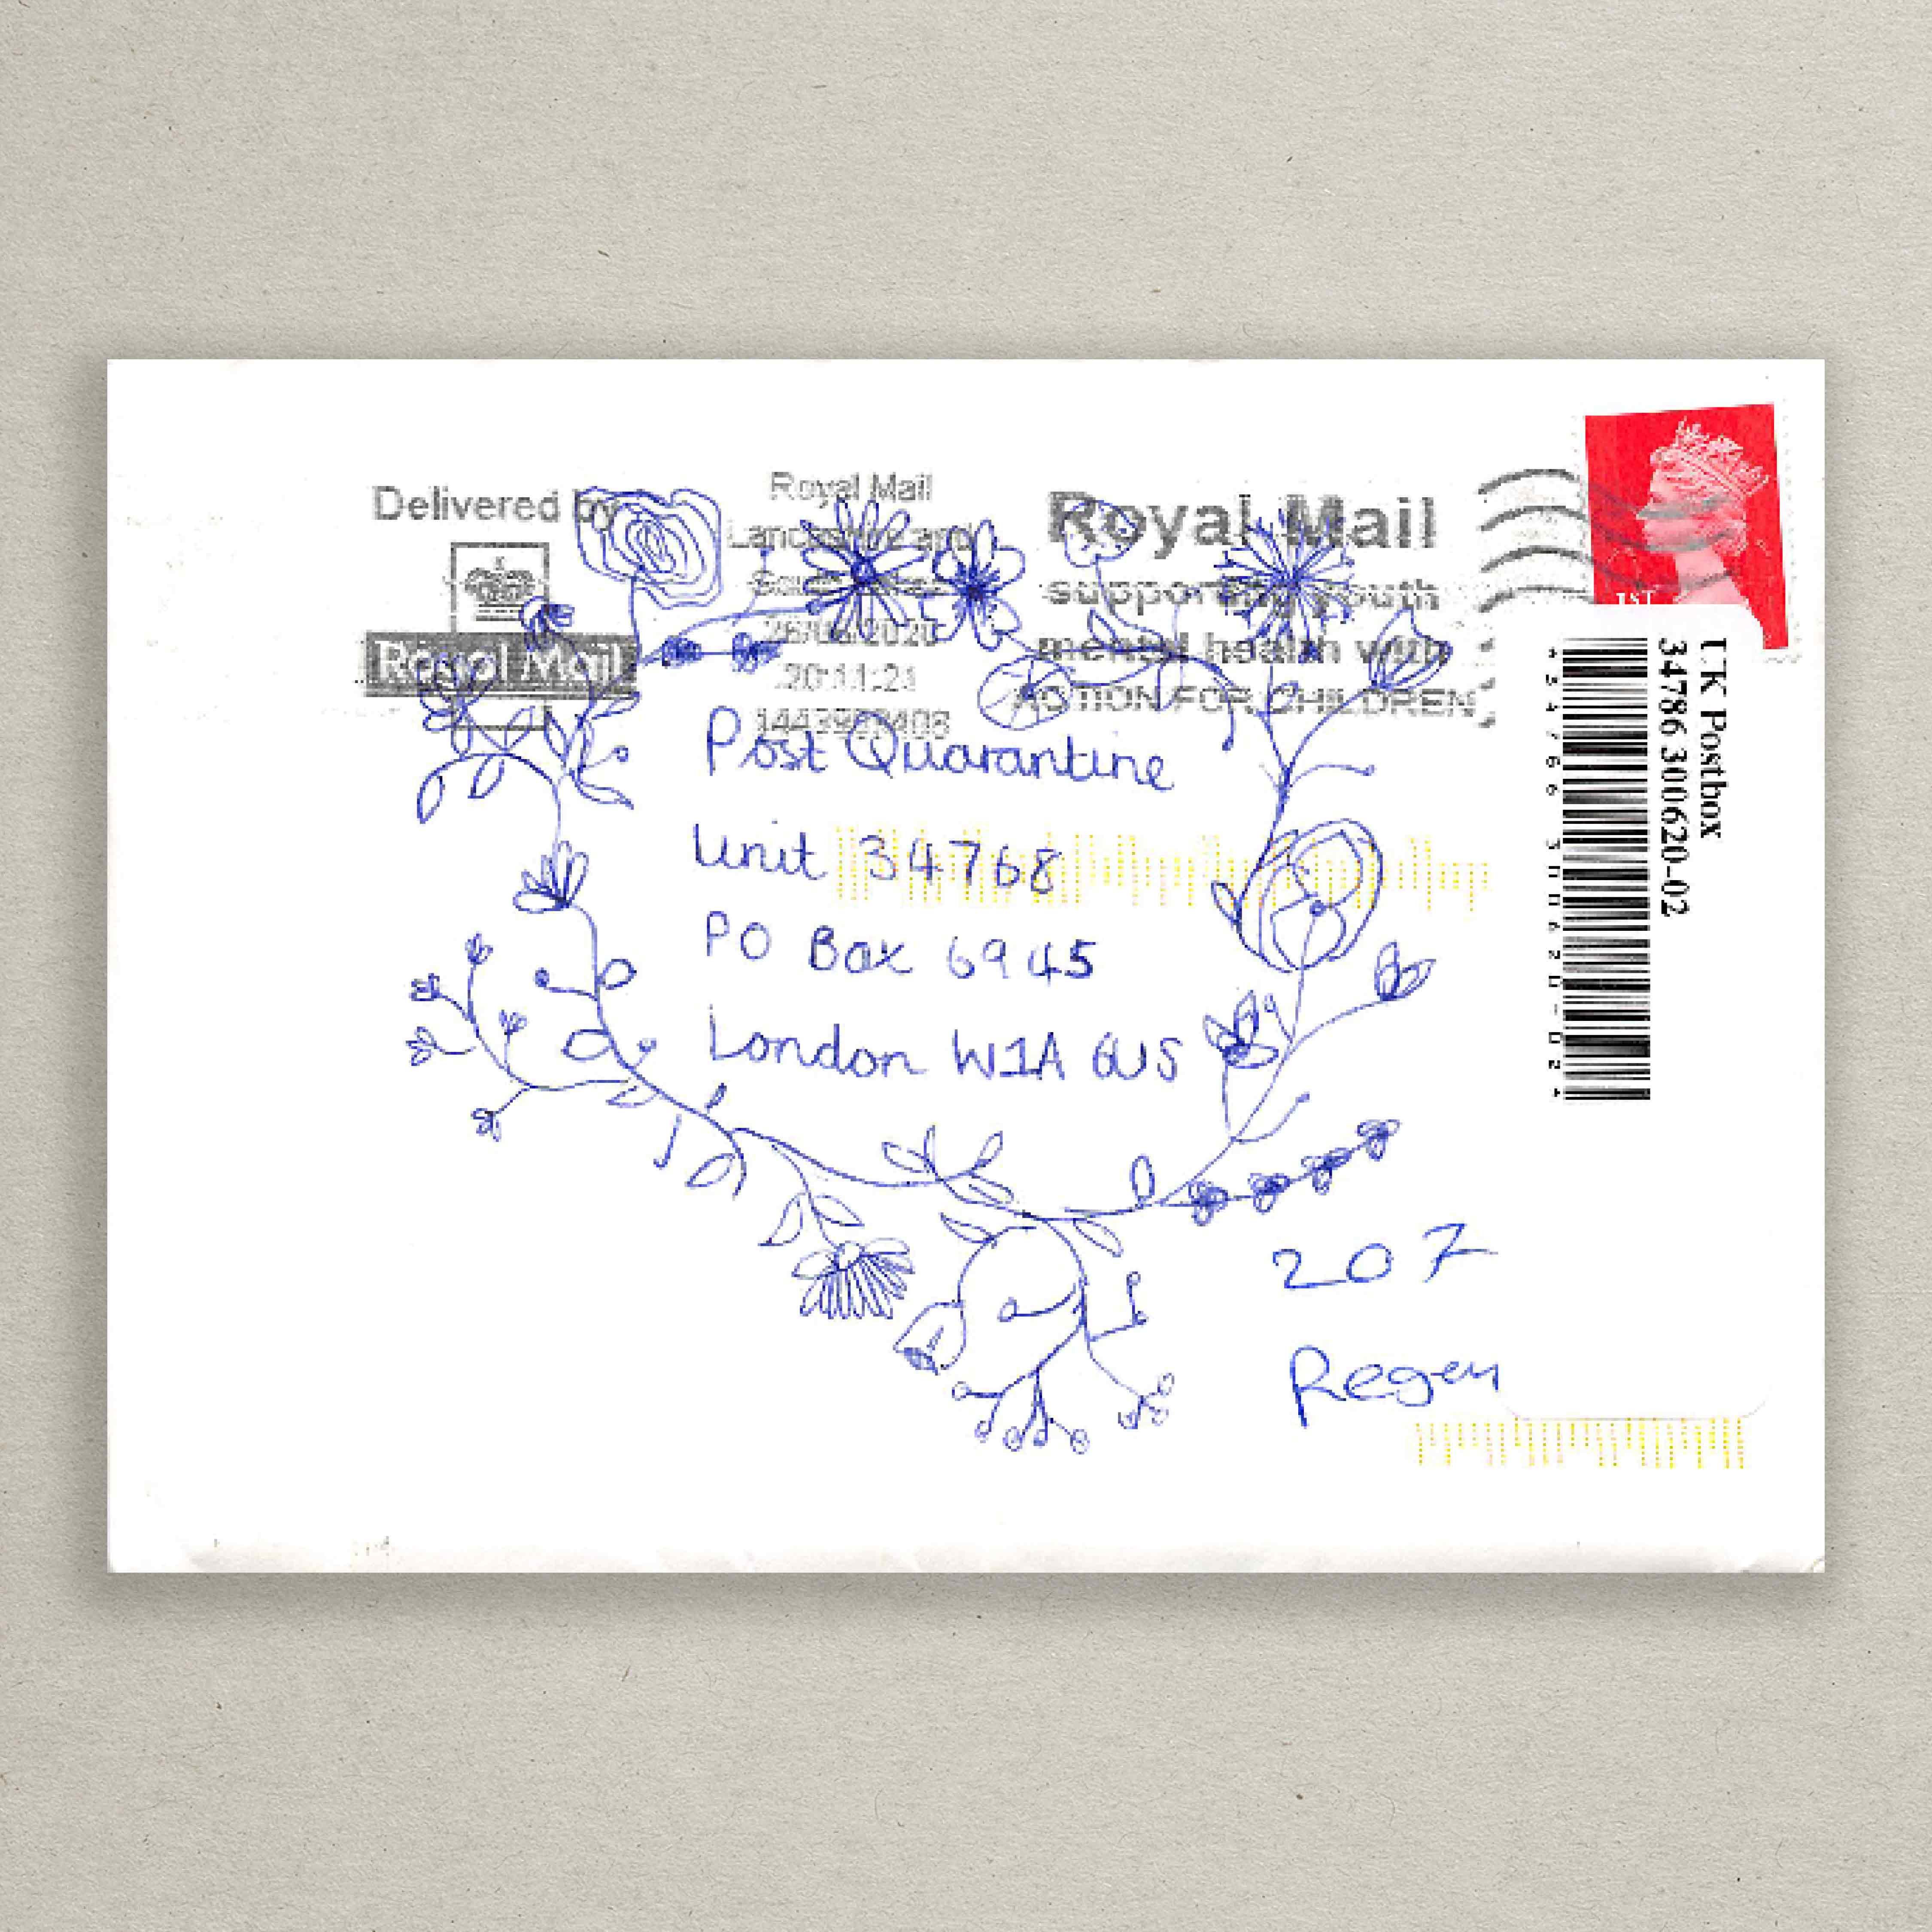 Delivered by
Royal Mail
Royal Mail
Lancashire and
20:11:21
Royal Mail
supporting youth
mental health with
ACTION FOR CHILDREN
1ST
UK Postbox
34786 300620-02
Post Quarantine
Unit 34768
PO Box 6945
London W1A 6US
207
Regen